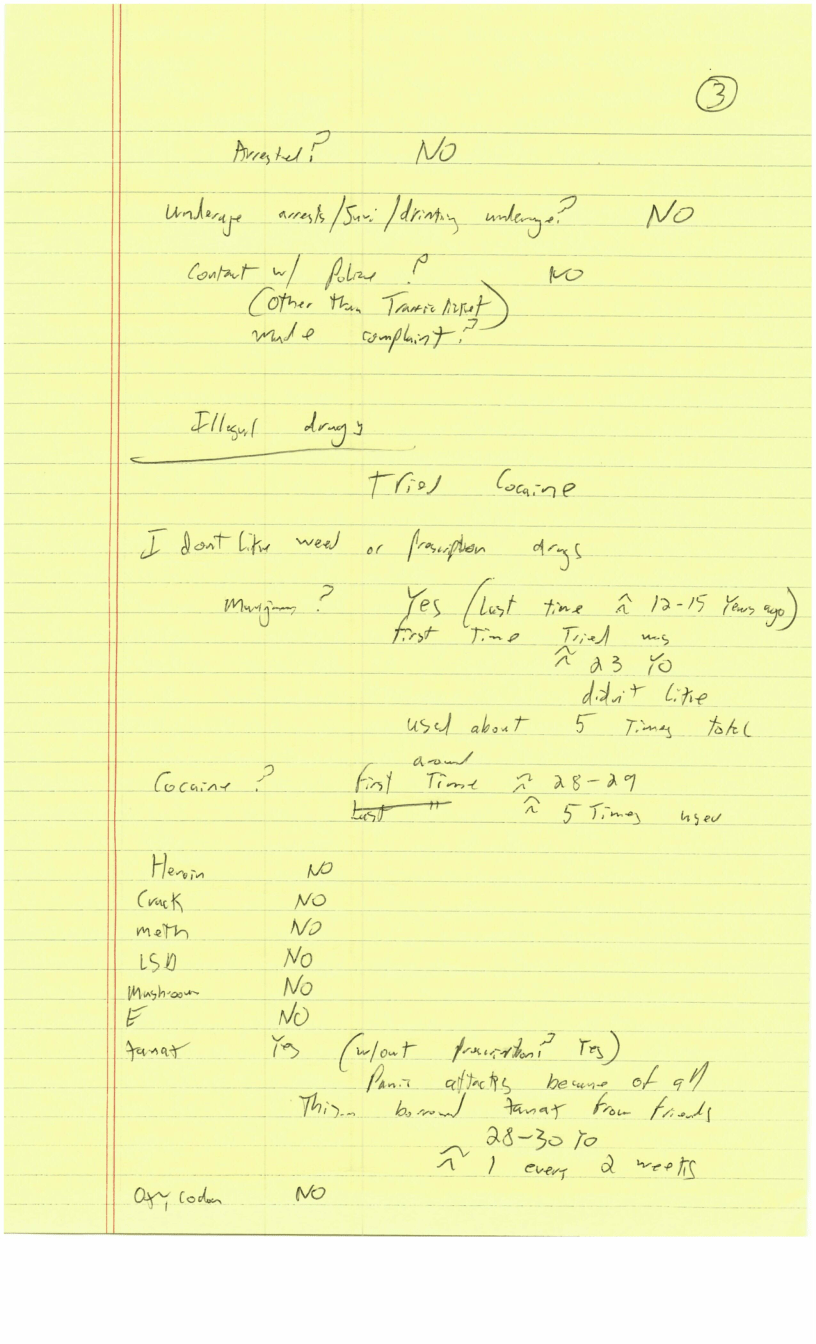 3
Arrested? NO
Underage arrests/Juvi/drinking underage? NO
Contact w/ Police? NO
(Other than Traffic ticket)
made complaint?
Illegal drugs
Tried Cocaine
I dont like weed or prescription drugs
Marijuana? Yes (last time ≈ 12-15 Years ago)
first Time Tried was
≈ 23 YO
didn't like
used about 5 Times total
around
Cocaine? first Time ≈ 28-29
Last " ≈ 5 Times used
Heroin NO
Crack NO
meth NO
LSD NO
Mushroom NO
E NO
Xanax Yes (w/out prescription? Yes)
Panic attacks because of all
This... borrowed Xanax from friends
28-30 YO
≈ 1 every 2 weeks
Oxycodon NO